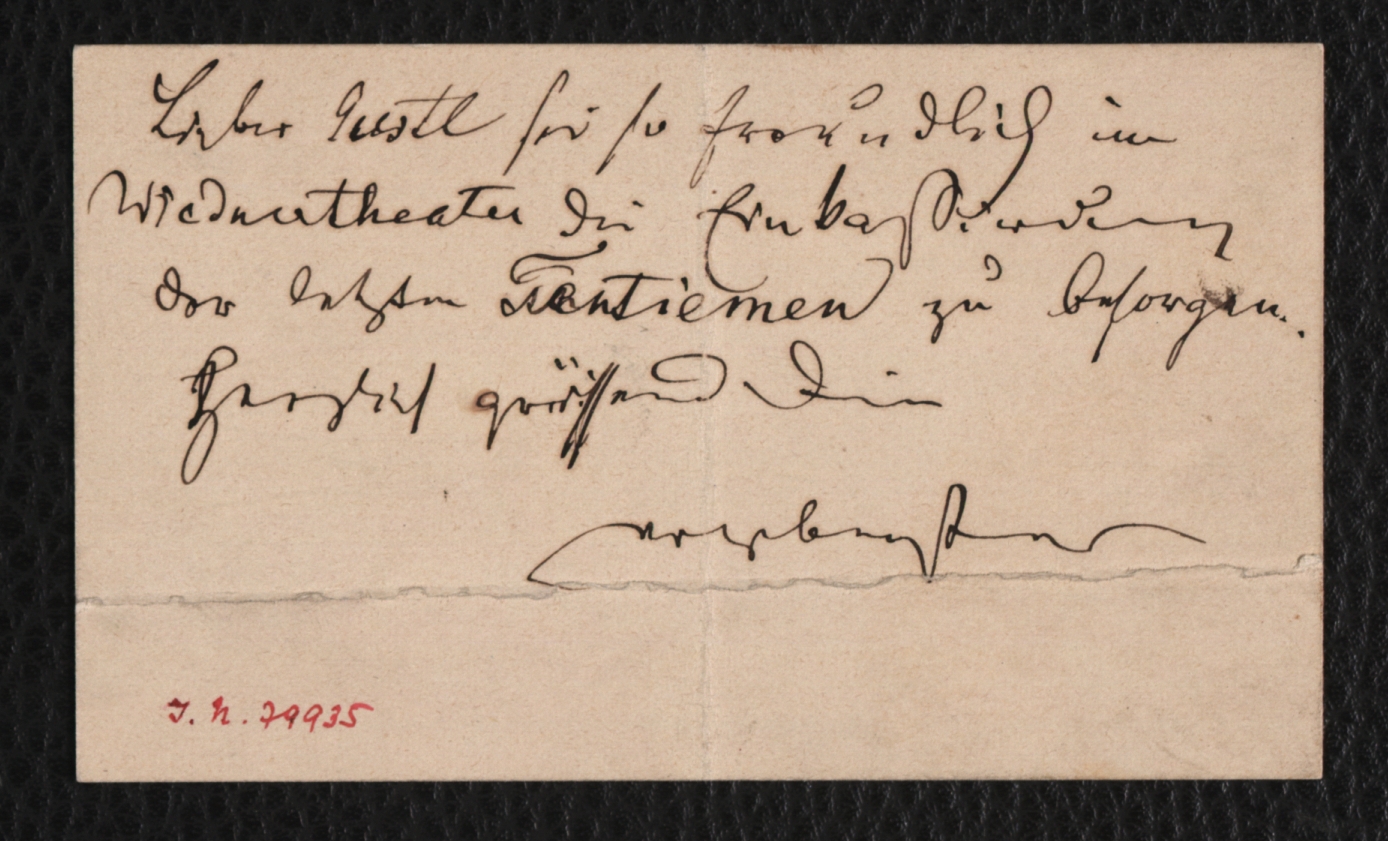 Lieber Gustl sei so freundlich im
Wiednertheater die Einkassirung
der letzten Tantiemen zu besorgen.
Herzlich grüssend Dein
I. N. 79935